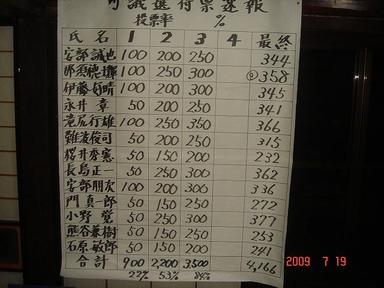 町議選得票速報
投票率 %
氏名 1 2 3 4 最終
安部誠也 100 200 250 344
那須徳雄 100 250 300 358
伊藤好晴 100 200 300 345
永井章 50 200 250 341
滝尾行雄 100 250 350 366
難波俊司 50 200 250 315
桜井秀憲 50 150 200 232
長島正一 50 250 300 362
安部朋次 100 200 300 336
門真一郎 50 150 250 272
小野覚 50 250 300 377
熊谷兼樹 50 150 250 253
石原敏郎 50 150 200 241
合計 900 2,200 3,500 4,166
22% 53% 84%
2009 7 19